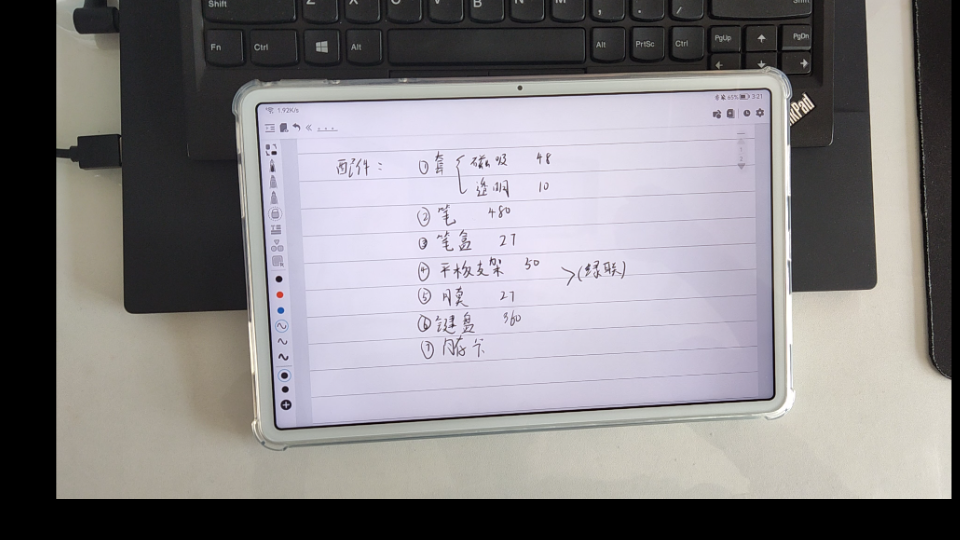 Shift Z X C V B N M , . / Shift
Fn Ctrl Alt Alt PrtSc Ctrl PgUp PgDn
ThinkPad
1.92K/s 60% 3:21
配件： ① 套 { 磁吸 48
透明 10
② 笔 480
③ 笔盒 27
④ 平板支架 50
>(绿联)
⑤ 膜 27
⑥ 键盘 360
⑦ 内存卡